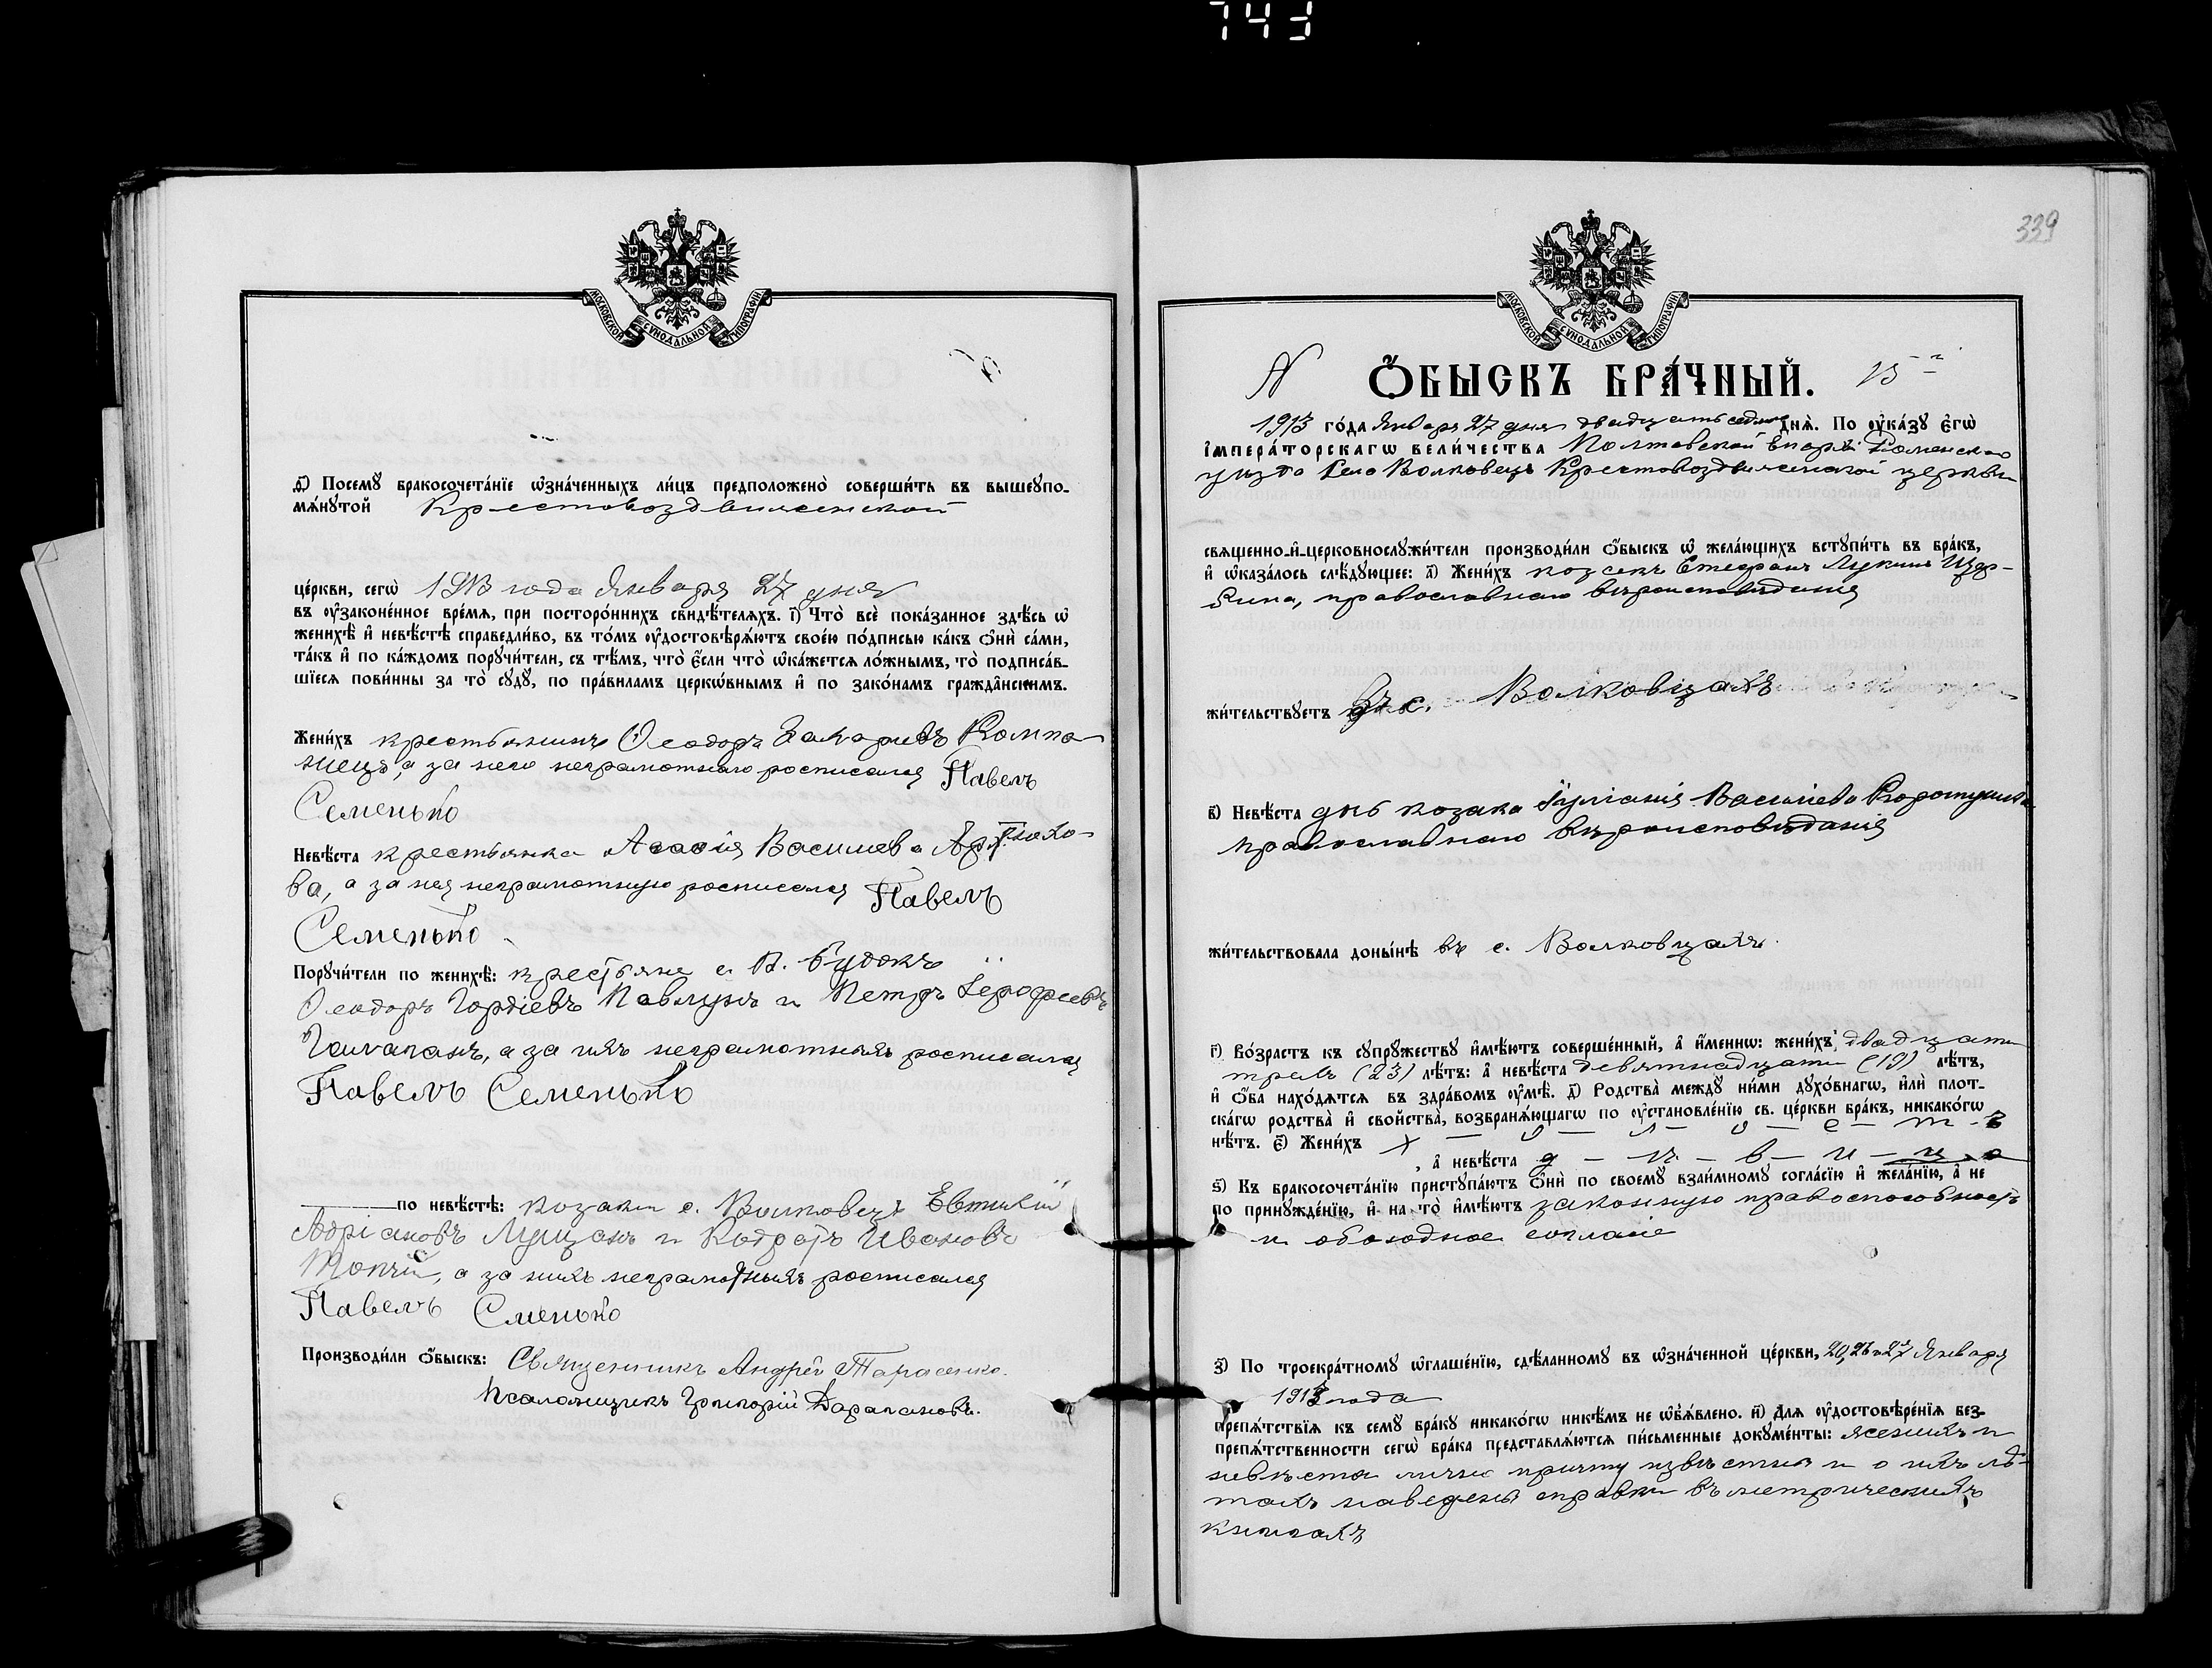 743
МОСКОВСКОЙ СУНОДАЛЬНОЙ ТИПОГРАФІИ
ѳ҃) Посемꙋ̀ бракосочета́нїе ѡ҆зна́ченныхъ ли́цъ предположено̀ соверши́ть въ вышеꙋпо-
мѧ́нꙋтой Крестовоздвиженской
це́ркви, сегѡ̀ 1913 года Января 27 дня
въ ᲂу҆законе́нное вре́мя, при посторо́ннихъ свидѣ́телѧхъ. і҃) Что̀ всѐ пока́занное здѣ́сь ѡ҆
женихѣ̀ и҆ невѣ́стѣ справедли́во, въ то́мъ ᲂу҆достовѣрѧ́ютъ свое́ю по́дписью ка́къ ѻ҆нѝ са́ми,
та́къ и҆ по ка́ждомъ порꙋчи́тели, съ тѣ́мъ, что̀ є҆́сли что̀ ѡ҆ка́жется ло́жнымъ, то̀ подписа́в-
шїеся пови́нны за то̀ сꙋдꙋ̀, по пра́виламъ церкѡ́внымъ и҆ по зако́намъ гражда̂нскимъ.
Жени́хъ крестьянинъ Ѳеодоръ Захаріевъ Компа-
ніецъ, а за него неграмотнаго росписался Павелъ
Семенько
Невѣ́ста крестьянка Васильева Артюхо-
ва, а за нея неграмотную росписался Павелъ
Семенько
Порꙋчи́тели по женихѣ̀: крестьяне с. В. Будокъ
Ѳеодоръ Гордіевъ Павлунъ и Петръ Іерофеевъ
а за ихъ неграмотныхъ росписался
Павелъ Семенько
по невѣ́стѣ: козаки с. Волковецъ Евтихій
Адріановъ Луцанъ и Кодратъ Ивановъ
а за нихъ неграмотныхъ росписался
Павелъ Сменько
Производи́ли ѻ҆́быскъ: Священникъ Андрей Тарасенко.
Псаломщикъ Григорій
339
МОСКОВСКОЙ СУНОДАЛЬНОЙ ТИПОГРАФІИ
N Ѻ҆́БЫСКЪ БРА́ЧНЫЙ. 15й
1913 го́да Января 27 дня двадцать седмого днѧ̀. По ᲂу҆ка́зꙋ є҆гѡ̀
і҆мпера́торскагѡ вели́чества Полтавской Епархіи Роменскаго
уѣзда Села Волковецъ Крестовоздвиженской церкви
свяще́нно-и҆-церковнослꙋжи́тели производи́ли ѻ҆́быскъ ѡ҆ жела́ющихъ встꙋпи́ть въ бра́къ,
и҆ ѡ҆каза́лось слѣ́дꙋющее: а҃) Жени́хъ козакъ Стефанъ Лукинъ
православнаго вѣроисповѣданія
жи́тельствꙋетъ въ с. Волковцахъ
в҃) Невѣ́ста дчь козака Іуліанія Васильева
православнаго вѣроисповѣданія
жи́тельствовала доны́нѣ въ с. Волковцахъ.
г҃) Во́зрастъ къ сꙋпрꙋжествꙋ и҆мѣ́ютъ соверше́нный, а҆ и҆́меннѡ: жени́хъ двадцати
трехъ (23) лѣ́тъ: а҆ невѣ́ста девятнадцати (19) лѣ́тъ,
и҆ ѻ҆́ба нахо́дятся въ здра́вомъ ᲂу҆мѣ̀. д҃) Родства̀ междꙋ ни́ми дꙋхо́внагѡ, и҆лѝ плот-
ска́гѡ родства̀ и҆ сво́йства̀, возбранѧ́ющагѡ по ᲂу҆становле́нїю св. це́ркви бра́къ, никако́гѡ
нѣ́тъ. є҃) Жени́хъ х — о — л — о — с — т — ъ
, а҆ невѣ́ста д — ѣ — в — и — ц — а
ѕ҃) Къ бракосочета́нїю пристꙋпа́ютъ ѻ҆нѝ по своемꙋ̀ взаи́мномꙋ согла́сїю и҆ жела́нїю, а҆ не
по принꙋжде́нїю, и҆ на то̀ и҆мѣ́ютъ законную правоспособность
и обоюдное согласіе
з҃) По троекра́тномꙋ ѡ҆глаше́нїю, сдѣ́ланномꙋ въ ѡ҆зна́ченной це́ркви, 20, 26 и 27 Января
1913 года
препѧ́тствїѧ къ семꙋ̀ бра́кꙋ никако́гѡ никѣ́мъ не ѡ҆б̾ѧ́влено. и҃) Для ᲂу҆достовѣре́нїѧ без-
препѧ́тственности сегѡ̀ бра́ка представлѧ́ются пи́сьменные докꙋме́нты: женихъ и
невѣста лично причту извѣстны и о ихъ лѣ-
тахъ наведены справки въ метрическихъ
книгахъ